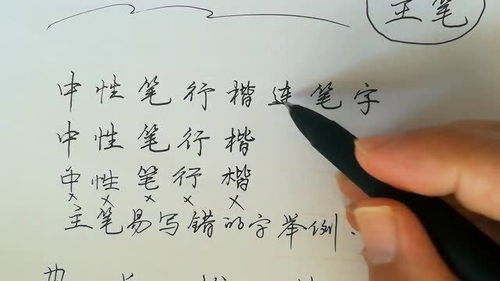 主笔
中性笔行楷连笔字
中性笔行楷
中性笔行楷
× × × × ×
主笔易写错的字举例.